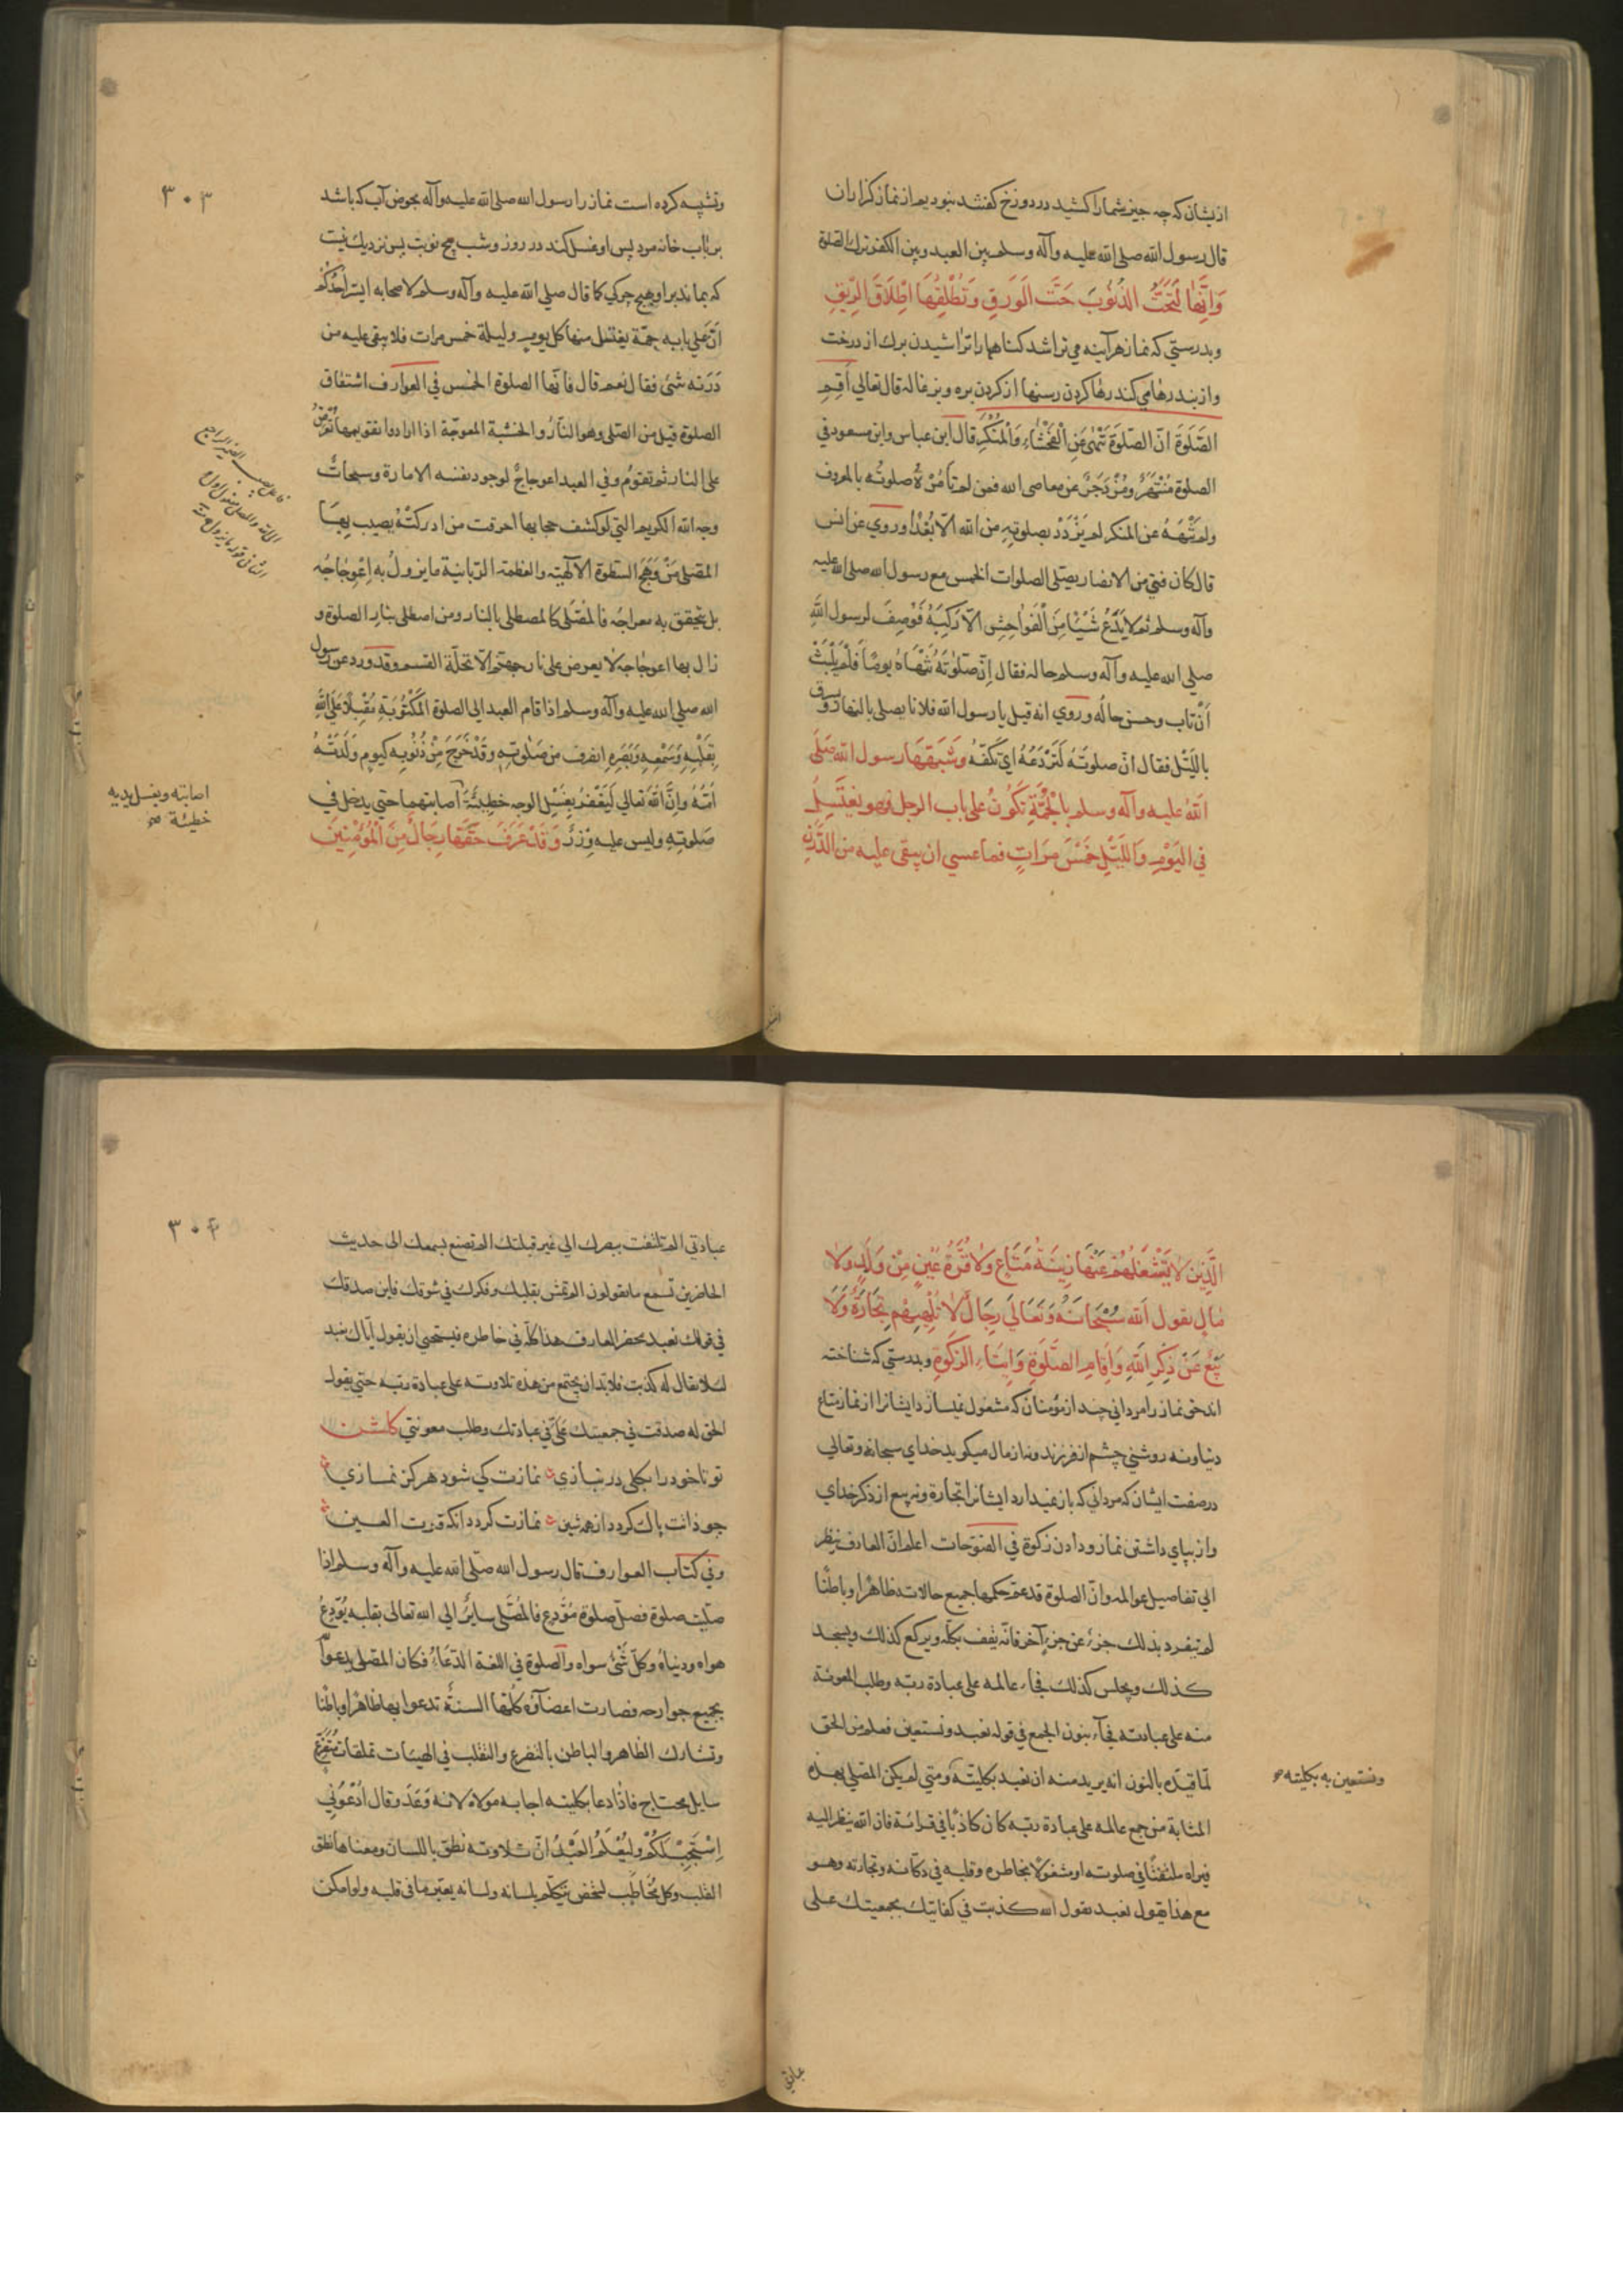 ازیشان که چه چیز شما را کشید در دوزخ کفتند نبودیم از نماز کزاران
قال رسول الله صلی الله علیه وآله وسلم بین العبد وبین الکفر ترک الصلوة
وَاِنَّها لَتَحُتُّ الذُّنُوبَ حَتَّ الوَرَقِ وَتُطْلِقُهَا اِطْلَاقَ الرِّبَقِ
وبدرستی که نماز هر آینه می تراشد کناهها را تراشیدن برک از درخت
واز بند رها می کند رها کردن رسنها از کردن بره وبزغاله قال تعالی اَقِمِ
الصَّلوَةَ انّ الصّلوَةَ تَنْهٰی عَنِ الْفَحْشَاءِ وَالْمُنْکَرِ قال ابن عباس وابن مسعود فی
الصلوة مُنْتَهًی ومُزْدَجَرٌ عن معاصی الله فمن لم تَأمُرْهُ صلوتُه بالمعروف
ولم تَنْهَهُ عن المنکر لم یَزْدَدْ بصلوتِهِ من الله الّا بُعْدًا وروی عن انس
قال کان فتی من الانصار یصلی الصلوات الخمس مع رسول الله صلی الله علیه
وآله وسلم ثم لا یَدَعُ شَیْئًا مِنَ الْفَواحِشِ الّا رَکِبَهُ فَوُصِفَ لرسول اللّٰهِ
صلی الله علیه وآله وسلم حاله فقال اِنّ صَلوٰتَهُ تَنْهَاهُ یومًا فَلَمْ یَلْبَثْ
اَنْ تاب وحسن حالُه وروی انه قیل یا رسول الله فلانا یصلی بالنهار ویسرق
باللیْل فقال انّ صلوتَهُ لَتَرْدَعُهُ ای تکفّهُ وَشَبَّهَهَا رسول الله صَلَّی
اللّٰهُ علیه وآله وسلم بِالْحَمَّةِ تَکُونُ علی باب الرجل فهو یَغْتَسِلُ
فی الیَوْمِ وَاللَّیْلِ خَمْسَ مَرَاتٍ فما عسی ان یبقی علیه من الدَّرَنِ
۳۰۳
وتشبیه کرده است نماز را رسول الله صلی الله علیه وآله بحوض آب که باشد
بر باب خانه مرد پس او غسل کند در روز وشب پنج نوبت پس نزدیک نیست
که بماند بر او هیچ چرکی کما قال صلی الله علیه وآله وسلم لاصحابه ایسُرّ اَحَدَکُمْ
انّ علی بابه حمّة یغتسل منها کل یوم ولیلة خمس مرات فلا یبقی علیه من
دَرَنه شئ فقال نعم قال فانّها الصلوة الخمس فی العوارف اشتقاق
الصلوة قیل من الصّلی وهو النّارُ والخشبة المعوجّة اذا ارادوا تقویمها تُعرَضُ
علی النار ثم تقوّمُ وفی العبد اعوجاجٌ لوجود نفسه الامارة وسبحاتُ
وجه الله الکریم التی لو کشف حجابها احرقت من ادرکَتْهُ یصیب بِهَا
المصلّی مِنْ وَهَجِ السّطوة الآلهیّة والعظمة الرّبانیة ما یزولُ به اِعْوِجَاجُه
بل یتحقق به معراجُه فالمُصَلّی کالمصطلی بالنار ومن اصطلی بنار الصلوة و
زال بها اعوجاجه لا یعرض علی نار جهنّم الّا تحلّة القسم وقد ورد عن رسول
الله صلی الله علیه وآله وسلم اذا قام العبد الی الصلوة المَکْتُوبَةِ مُقْبِلًا عَلَی اللّٰهِ
بِقَلْبِهِ وَسَمْعِهِ وَبَصَرِهِ انصرف من صَلوتِهِ وقَدْ خَرَجَ مِنْ ذُنُوبِه کیوم وَلَدَتْهُ
اُمُّهُ وَاِنَّ اللّٰهَ تعالی لَیَغْفِرُ بِغَسْلِ الوجه خَطِیئَةً اَصابتهما حتی یدخل فی
صَلوتِهِ ولیس علیه وِزْرٌ وَقَدْ عَرَفَ حَقَّهَا رِجَالٌ مِنَ الْمُؤمِنِینَ
اصابته وبغسل یدیه
خطیئة صح
الَّذِینَ لا یَشْغَلُهُمْ عَنْهَا زِینَةُ مَتَاعٍ وَلا قُرَّةُ عَیْنٍ مِنْ وَلَدٍ ولا
مَالٍ یقول الله سُبْحَانَهُ وَتَعَالَی رِجَالٌ لا تُلْهِیهِمْ تِجَارَةٌ وَلَا
بَیْعٌ عَنْ ذِکْرِ اللّٰهِ وَاِقَامِ الصَّلَوةِ وَاِیتَاءِ الزَّکَوةِ وبدرستی که شناخته
اند حق نماز را مردانی چند از مؤمنان که مشغول نمیسازد ایشانرا از نماز متاع
دنیا ونه روشنی چشم از فرزند ونه از مال میکوید خدای سبحانه وتعالی
در صفت ایشان که مردانی که باز نمیدارد ایشانرا تجارة ونه بیع از ذکر خدای
واز بپای داشتن نماز ودادن زکوة فی الفتوحات اعلم انّ العارف ینظر
الی تفاصیل عوالمه وانّ الصلوة قد عمّ حکمها جمیع حالاته ظاهرًا وباطنًا
لم تنفرد بذلک جزءٌ عن جزءٍ آخر فانّه یقف بکلّه ویرکع کذلک ویسجد
کذلک ویجلس کذلک فجاء عالمه علی عبادة ربّه وطلب المعونة
منه علی عبادته فجآء بنون الجمع فی قوله نعبد ونستعین فعلم من الحق
لمّا قیّده بالنون انه یرید منه ان نعبد بکلیّته ومتی لم یکن المصلی بهذه
ونستعین به بکلیته صح
المثابة من جمع عالمه علی عبادة ربّه کان کاذبًا فی قرائة فان الله ینظر الیه
فیراه ملتفتًا فی صلوته او مشغولًا بخاطره وقلبه فی دکّانه وتجارته وهو
مع هذا یقول نعبد یقول الله کذبت فی کفایتک بجمعیتک علی
عبادتی
۳۰۴
عبادتی الم تلتفت ببصرک الی غیر قبلتک الم تصنع بسمعک الی حدیث
الحاضرین تسمع ما یقولون الم تمش بقلبک وفکرک فی سوقک فاین صدقک
فی قولک نعبد یحضر العارف هذا کلّه فی خاطره فیستحیی ان یقول ایّاک نعبد
لئلا یقال له کذبت فلا بد ان یجتمع من هذه تلاوته علی عبادة ربّه حتی یقول
الحق له صدقت فی جمعیتک علیّ فی عبادتک وطلب معونتی کلشن
تو تا خود را بکلی در نبازی نمازت کی شود هرکز نمازی
چو ذاتت پاک کردد از همه شین نمازت کردد آنکه قرت العین
وفی کتاب العوارف قال رسول الله صلی الله علیه وآله وسلم اذا
صلّیت صلوة فصلّ صلوة مُوَدِّعٍ فالمُصَلّی سایرٌ الی الله تعالی بقلبه یُوَدِّعُ
هواه ودنیاهُ وکلّ شَئٍ سواه والصلوة فی اللغة الدّعَاءُ فکان المصلی یدعوا
بجمیع جوارحه فصارت اعضآؤه کلّها السنةً تدعوا بها ظاهرًا وباطنًا
وتشارک الظاهر والباطن بالتضرع والتقلب فی الهیئات تملقات مُتضرّع
سایل محتاج فاذا دعا بکلیته اجابه مولاه لانه وَعَدَ وقال ادْعُونِی
اسْتَجِبْ لَکُمْ وَلیُعْلَم العَبْدُ انّ تلاوته نطق باللسان ومعناها نطق
القلب وکل مُخَاطِب لشخص یتکلّم بلسانه ولسانه یعبّر ما فی قلبه ولو امکن